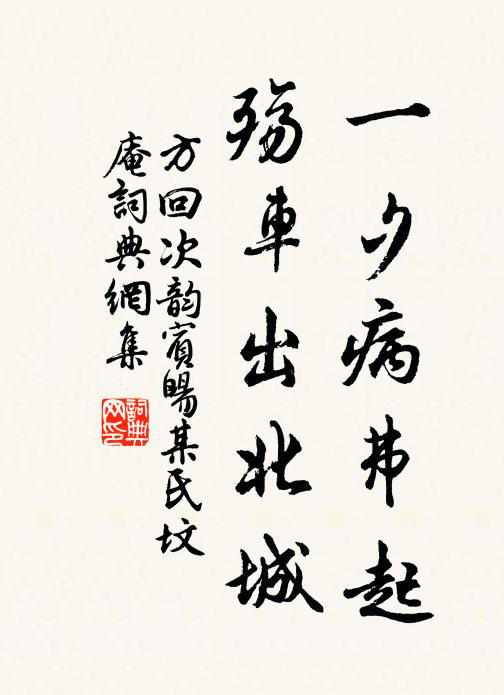 一夕病弗起
殤車出北城
方回次韵賓暘某氏坟
庵詞典網集
詞典
网印